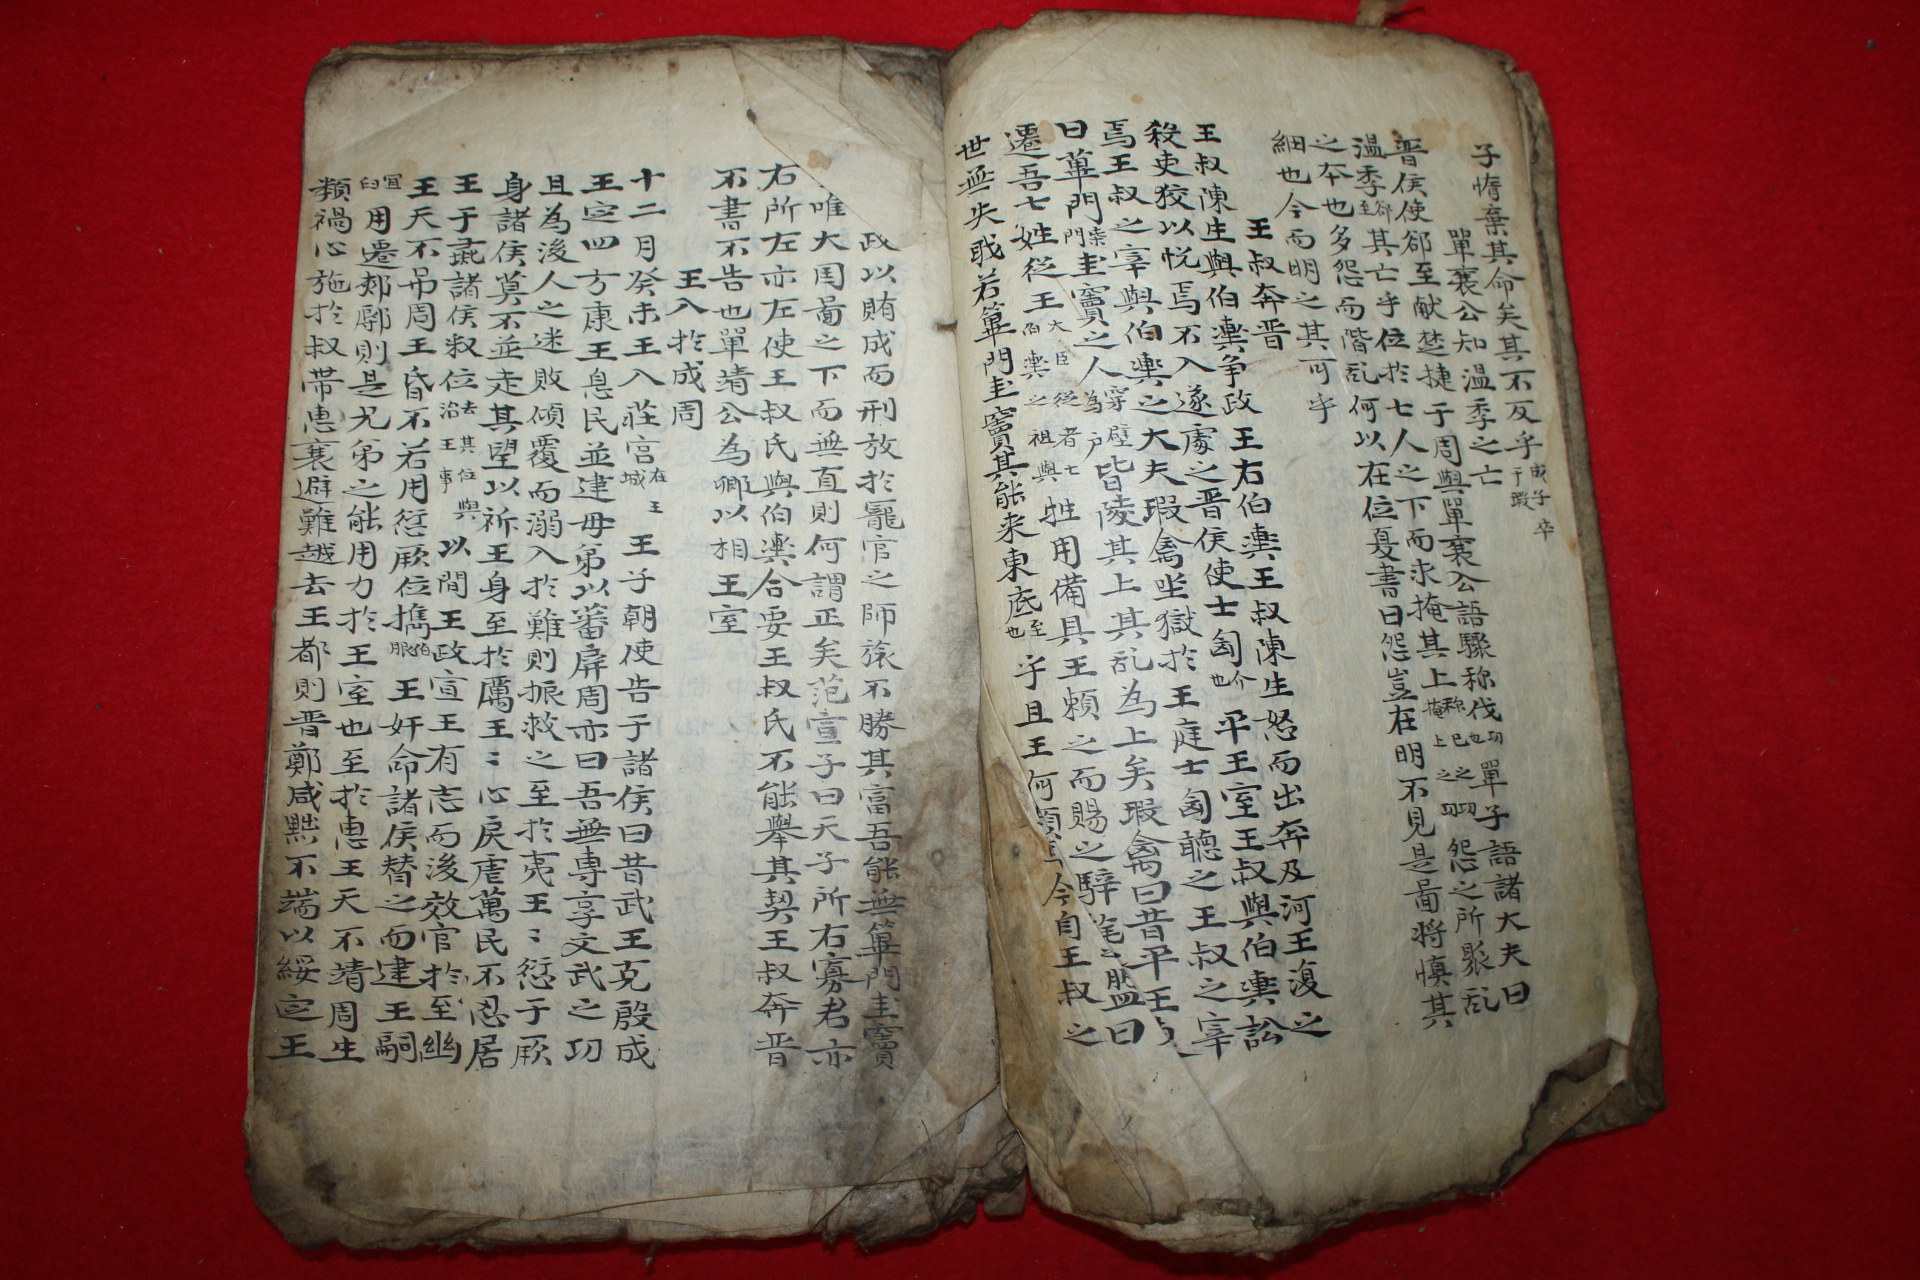 子惰棄其命矣其不反乎成子卒于瑕
單襄公知温季之亡
晋侯使郤至献楚捷于周與單襄公語驟称伐功也單子語諸大夫曰
温季郤至其亡乎位扵七人之下而求掩其上称已之功掩上之功怨之所聚乱
之夲也多怨而階乱何以在位夏書曰怨豈在明不見是啚将慎其
細也今而明之其可乎
王叔奔晋
王叔陳生與伯輿争政王右伯輿王叔陳生怒而出奔及河王復之
殺吏狡以悅焉不入遂處之晋侯使士匄平王室王叔與伯輿訟
焉王叔之宰與伯輿之大夫瑕禽坐獄扵王庭士匄聽之王叔之宰
曰篳門柴門圭竇之人皆陵其上其乱為上矣瑕禽曰昔平王
遷吾七姓従王牲用備具王頼之而賜之騂旄之盟曰
世無失職若篳門圭竇其能来東底至也乎且王何頼焉今自王叔之
政以賄成而刑放扵寵官之師旅不勝其富吾能無篳門圭竇
唯大囯啚之下而無直則何謂正矣范宣子曰天子所右寡君亦
右所左亦左使王叔氏與伯輿合要王叔氏不能舉其契王叔奔晋
不書不告也單靖公為卿以相王室
王入扵成周
十二月癸未王入荘宫在王城王子朝使告于諸侯曰昔武王克殷成
王定四方康王息民並建母弟以蕃屏周亦曰吾無専享文武之功
且為後人之迷敗傾覆而溺入扵難則振救之至扵夷王〻愆于厥
身諸侯莫不並走其望以祈王身至扵厲王〻心戾虐萬民不忍居
王于彘諸侯释位去其位與治王事以間王政宣王有志而後效官扵至幽
王天不吊周王昏不若用愆厥位攜王奸命諸侯替之而建王嗣
用遷郟鄏則是兄弟之能用力扵王室也至扵惠王天不靖周生
頽禍心施扵叔帯惠襄避難越去王都則晋鄭咸黙不端以綏定王